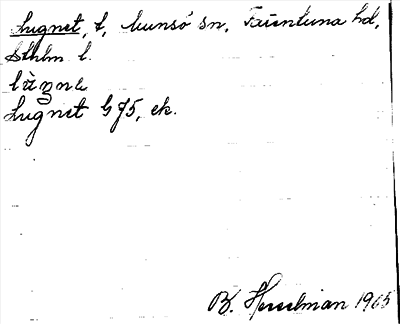 Lugnet, t, Munsö sn, Färentuna hd,
Sthlm l.
Lugnet G J5, ek.
B. Hesselman 1965